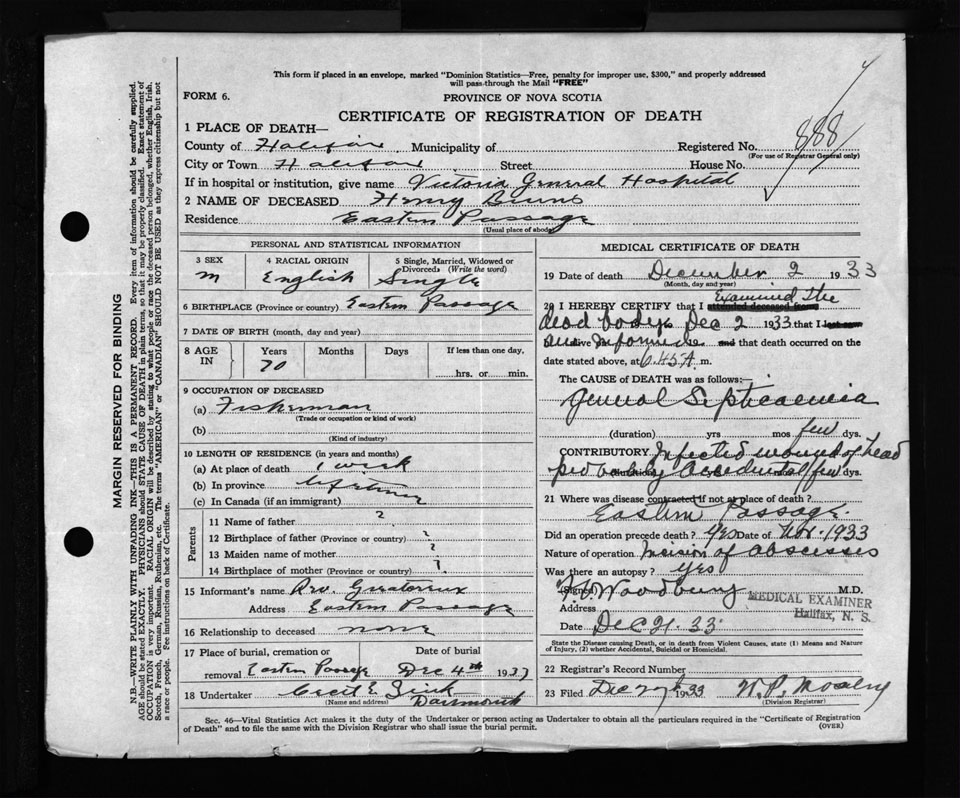 This form if placed in an envelope, marked "Dominion Statistics—Free, penalty for improper use, $300," and properly addressed
will pass through the Mail "FREE"
FORM 6.
PROVINCE OF NOVA SCOTIA
CERTIFICATE OF REGISTRATION OF DEATH
1 PLACE OF DEATH—
County of Halifax Municipality of Registered No. 888
(For use of Registrar General only)
City or Town Halifax Street House No.
If in hospital or institution, give name Victoria General Hospital
2 NAME OF DECEASED Henry
Residence Eastern Passage
(Usual place of abode)
PERSONAL AND STATISTICAL INFORMATION
3 SEX 4 RACIAL ORIGIN 5 Single, Married, Widowed or
Divorced (Write the word)
M English Single
6 BIRTHPLACE (Province or country) Eastern Passage
7 DATE OF BIRTH (month, day and year)
8 AGE IN Years Months Days If less than one day,
70 hrs. or min.
9 OCCUPATION OF DECEASED
(a) Fisherman
(Trade or occupation or kind of work)
(b)
(Kind of industry)
10 LENGTH OF RESIDENCE (in years and months)
(a) At place of death 1 week
(b) In province Lifetime
(c) In Canada (if an immigrant)
Parents
11 Name of father ?
12 Birthplace of father (Province or country) ?
13 Maiden name of mother ?
14 Birthplace of mother (Province or country) ?
15 Informant's name Rev.
Address Eastern Passage
16 Relationship to deceased none
17 Place of burial, cremation or Date of burial
removal Eastern Passage Dec 4th 1933
18 Undertaker Cecil E. Zink
(Name and address) Dartmouth
MEDICAL CERTIFICATE OF DEATH
19 Date of death December 2 1933
(Month, day and year)
20 I HEREBY CERTIFY that I attended deceased from Examined the
dead body Dec 2 1933 that I last saw
alive and that death occurred on the
date stated above, at m.
The CAUSE OF DEATH was as follows:—
General Septicaemia
(duration) yrs mos few dys.
CONTRIBUTORY Infected wound of head
probably Accidental few dys.
21 Where was disease contracted if not at place of death?
Eastern Passage
Did an operation precede death? Yes Date of Nov. 1933
Nature of operation Incision of abscesses
Was there an autopsy? yes
(Signed) Woodbury M.D.
MEDICAL EXAMINER
Halifax, N. S.
Address
Date Dec 33
State the Disease causing Death, or in death from Violent Causes, state (1) Means and Nature
of Injury, (2) whether Accidental, Suicidal or Homicidal.
22 Registrar's Record Number
23 Filed Dec 1933 W. P.
(Division Registrar)
Sec. 46—Vital Statistics Act makes it the duty of the Undertaker or person acting as Undertaker to obtain all the particulars required in the "Certificate of Registration
of Death" and to file the same with the Division Registrar who shall issue the burial permit.
(OVER)
MARGIN RESERVED FOR BINDING
N.B.—WRITE PLAINLY WITH UNFADING INK—THIS IS A PERMANENT RECORD. Every item of information should be carefully supplied.
AGE should be stated EXACTLY. PHYSICIANS should STATE CAUSE OF DEATH in plain terms, so that it may be properly classified. Exact statement of
OCCUPATION is very important. RACIAL ORIGIN will be described by stating to what people or race the deceased person belonged, whether English, Irish,
Scotch, French, German, Russian, Ruthenian, etc. The terms "AMERICAN" or "CANADIAN" SHOULD NOT BE USED as they express citizenship but not
a race or people. Fee instructions on back of Certificate.